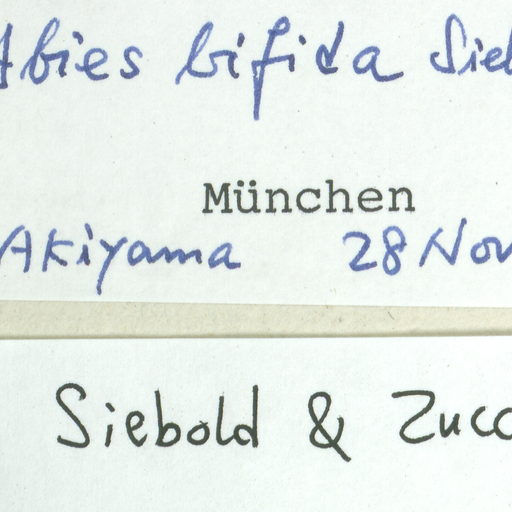 Abies bifida Sieb
München
Akiyama 28 Nov
Siebold & Zucc